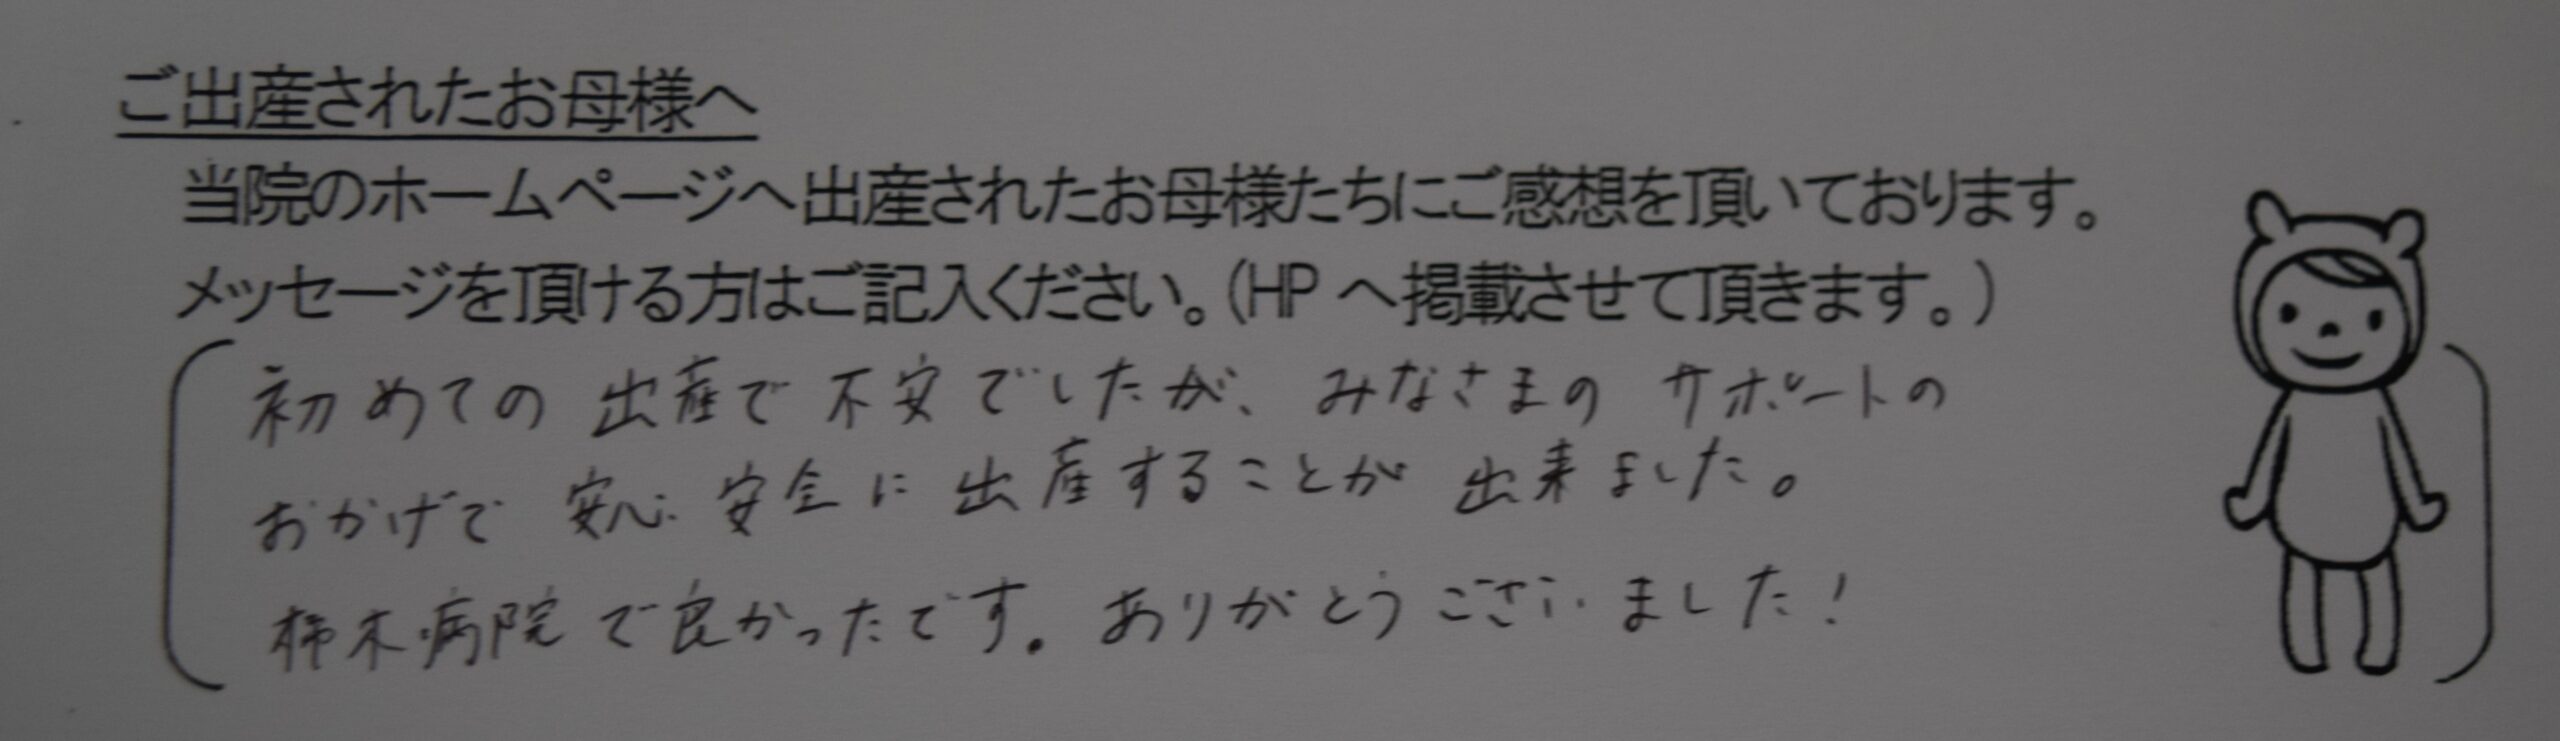 ご出産されたお母様へ
当院のホームページへ出産されたお母様たちにご感想を頂いております。
メッセージを頂ける方はご記入ください。(HPへ掲載させて頂きます。)
初めての出産で不安でしたが、みなさまのサポートの
おかげで安心安全に出産することが出来ました。
柿木病院で良かったです。ありがとうございました！